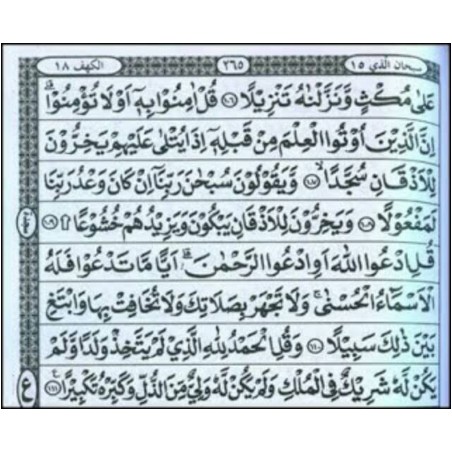 سبحان الذي ١٥ ٢٦٥ الكهف ١٨
عَلٰى مُكْثٍ وَّنَزَّلْنٰهُ تَنْزِيْلًا ﴿١٠٦﴾ قُلْ اٰمِنُوْا بِهٖٓ اَوْ لَا تُؤْمِنُوْا ؕ
اِنَّ الَّذِيْنَ اُوْتُوا الْعِلْمَ مِنْ قَبْلِهٖٓ اِذَا يُتْلٰى عَلَيْهِمْ يَخِرُّوْنَ
لِلْاَذْقَانِ سُجَّدًا ۙ ﴿١٠٧﴾ وَّيَقُوْلُوْنَ سُبْحٰنَ رَبِّنَآ اِنْ كَانَ وَعْدُ رَبِّنَا
لَمَفْعُوْلًا ﴿١٠٨﴾ وَيَخِرُّوْنَ لِلْاَذْقَانِ يَبْكُوْنَ وَيَزِيْدُهُمْ خُشُوْعًا ﴿١٠٩﴾
قُلِ ادْعُوا اللّٰهَ اَوِ ادْعُوا الرَّحْمٰنَ ؕ اَيًّا مَّا تَدْعُوْا فَلَهُ
الْاَسْمَآءُ الْحُسْنٰى ۚ وَلَا تَجْهَرْ بِصَلَاتِكَ وَلَا تُخَافِتْ بِهَا وَابْتَغِ
بَيْنَ ذٰلِكَ سَبِيْلًا ﴿١١٠﴾ وَقُلِ الْحَمْدُ لِلّٰهِ الَّذِيْ لَمْ يَتَّخِذْ وَلَدًا وَّلَمْ
يَكُنْ لَّهٗ شَرِيْكٌ فِي الْمُلْكِ وَلَمْ يَكُنْ لَّهٗ وَلِيٌّ مِّنَ الذُّلِّ وَكَبِّرْهُ تَكْبِيْرًا ﴿١١١﴾
ع